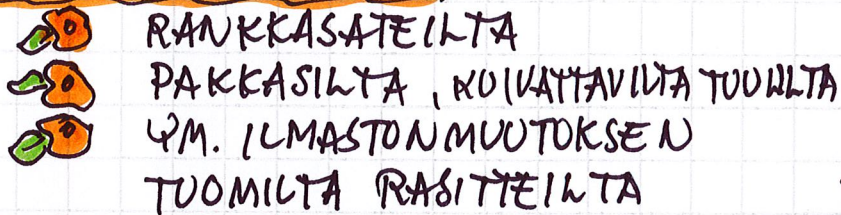 RANKKASATEILTA
PAKKASILTA, KUIVATTAVILTA TUULILTA
YM. ILMASTONMUUTOKSEN
TUOMILTA RASITTEILTA